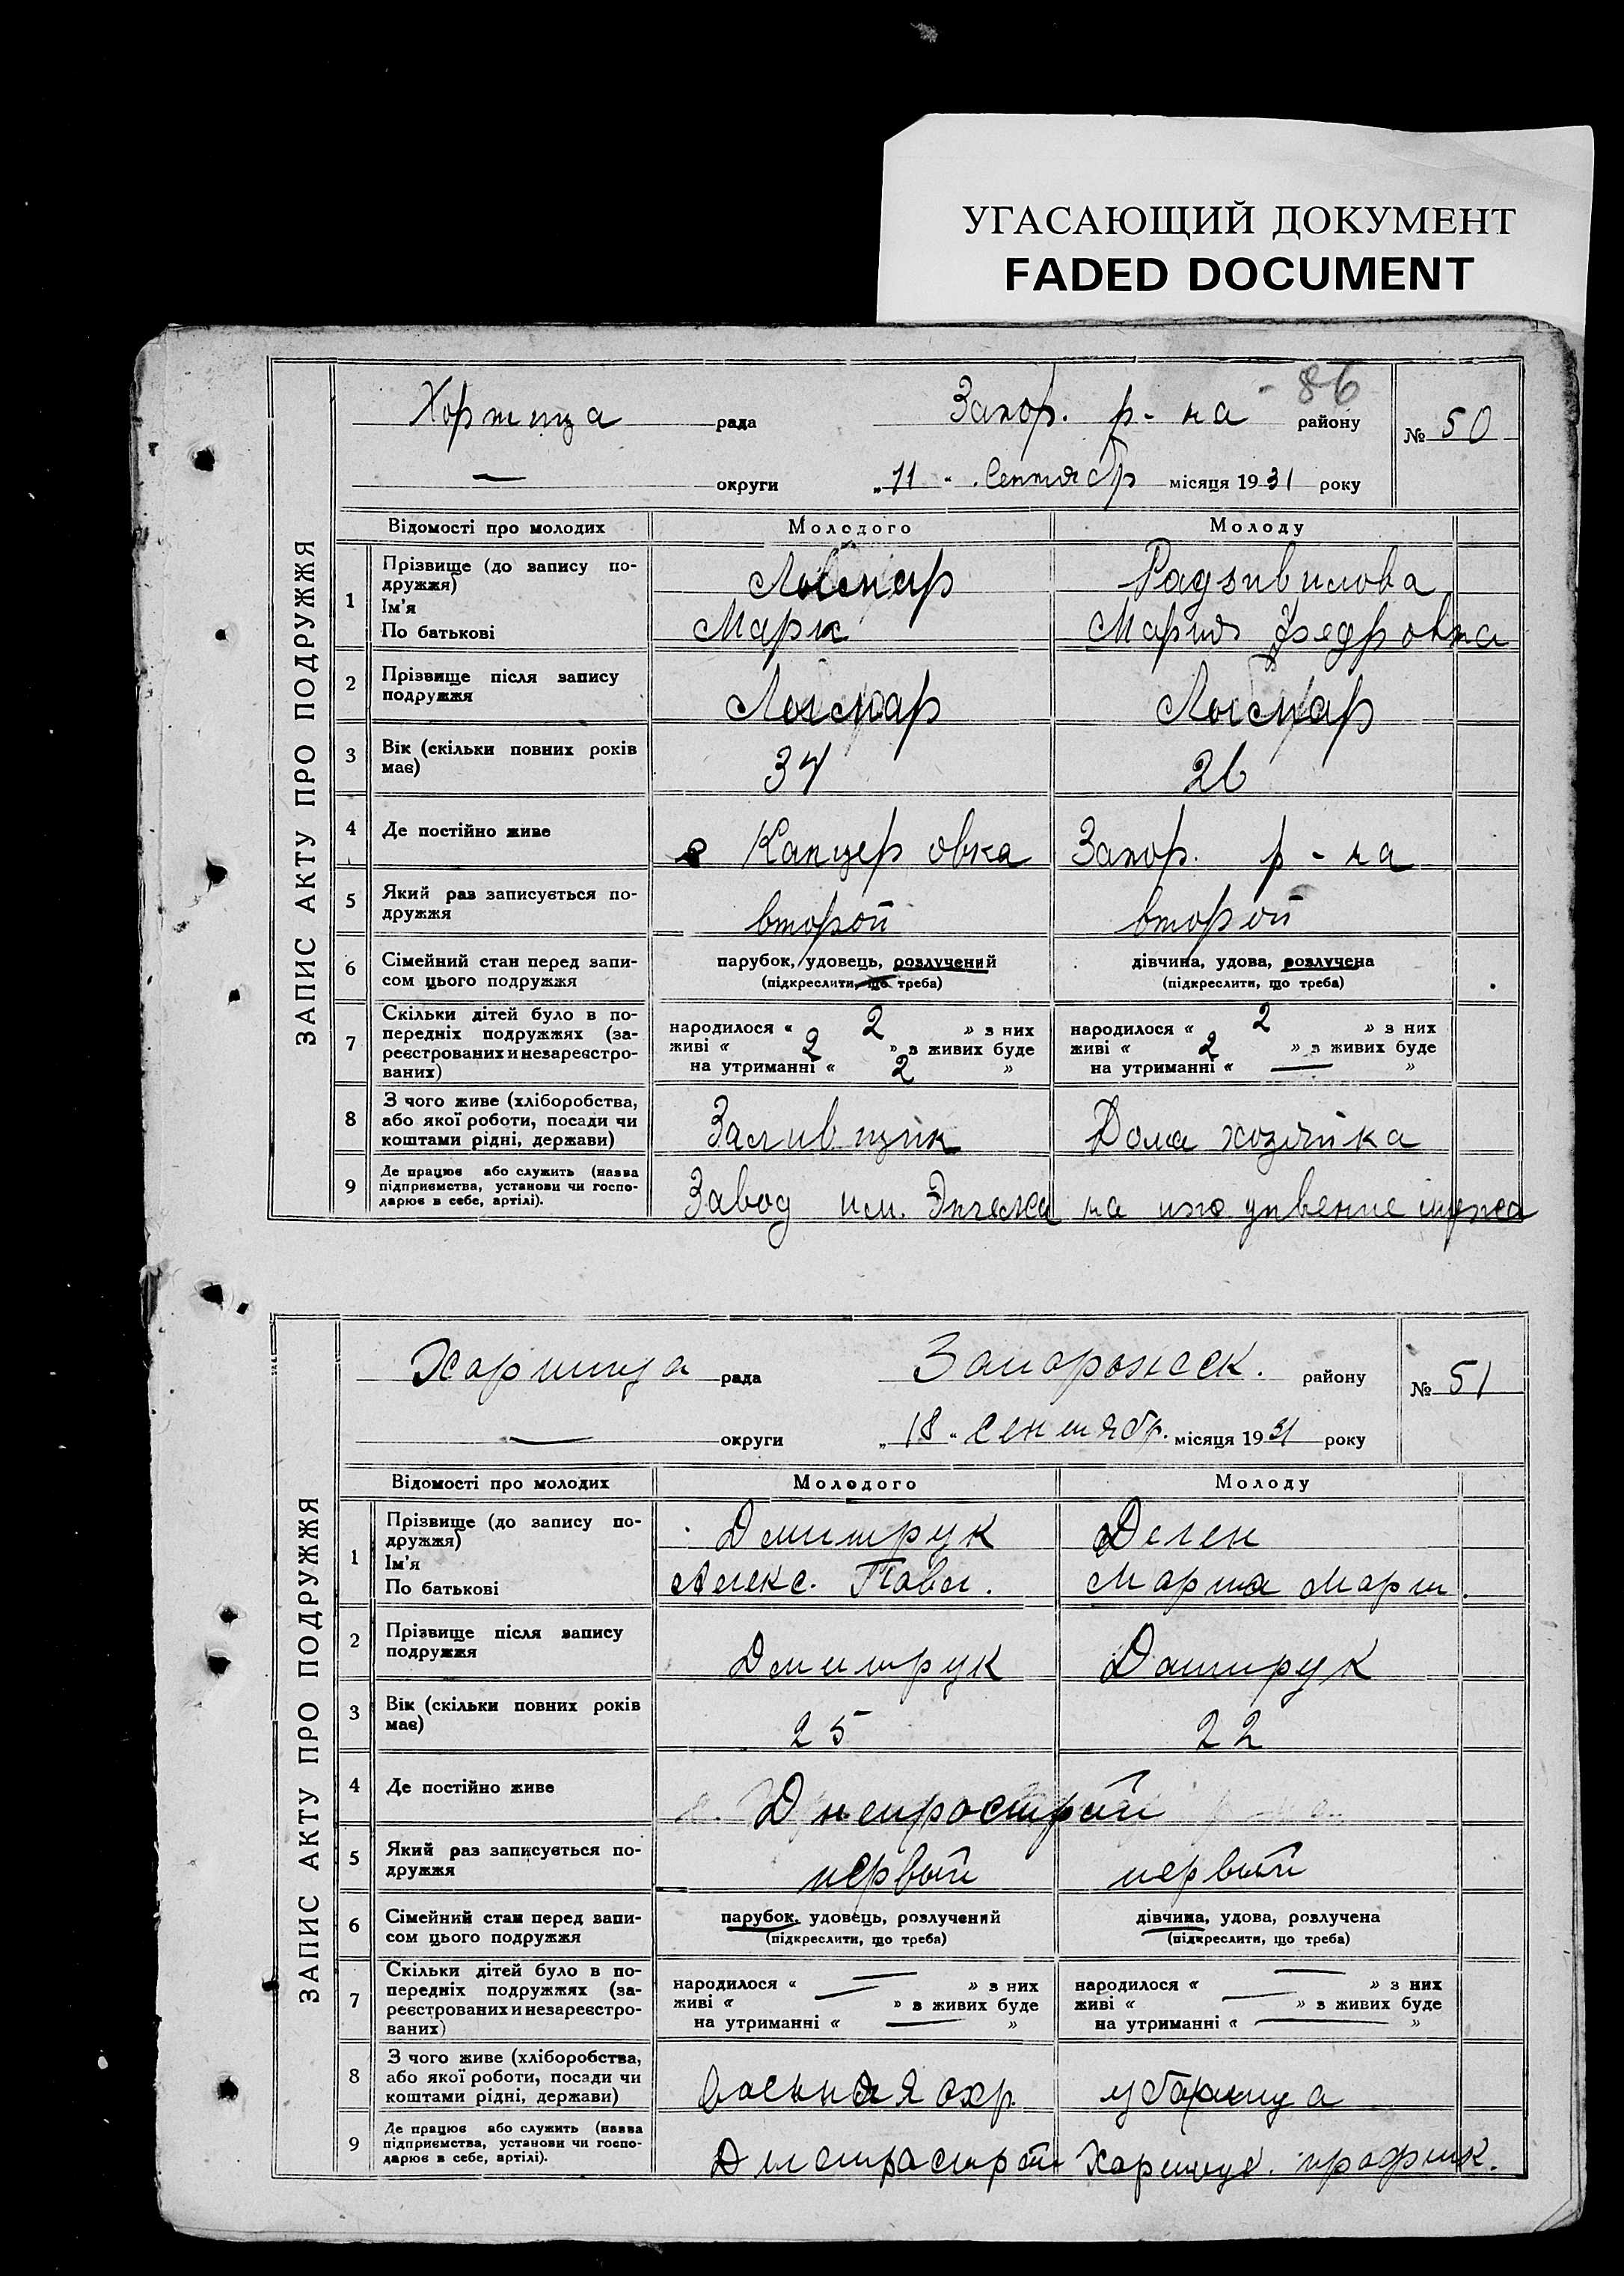 УГАСАЮЩИЙ ДОКУМЕНТ
FADED DOCUMENT
86
ЗАПИС АКТУ ПРО ПОДРУЖЖЯ
Хортица рада Запор. р-на району № 50
— округи „11“ Сентябр місяця 1931 року
Відомості про молодих Молодого Молоду
1 Прізвище (до запису по-
дружжя) Радзивилова
Ім'я
По батькові Марк Мария Федровна
2 Прізвище після запису
подружжя
3 Вік (скільки повних років
має) 34 26
4 Де постійно живе Канцеровка Запор. р-на
5 Який раз записується по-
дружжя второй второй
6 Сімейний стан перед запи-
сом цього подружжя парубок, удовець, розлучений дівчина, удова, розлучена
(підкреслити, що треба) (підкреслити, що треба)
7 Скільки дітей було в по-
передніх подружжях (за-
реєстрованих и незареєстро-
ваних)
народилося « 2 » з них народилося « 2 » з них
живі « 2 » з живих буде живі « 2 » з живих буде
на утриманні « 2 » на утриманні « — »
8 З чого живе (хліборобства,
або якої роботи, посади чи
коштами рідні, держави) Заливщик Дома хозяйка
9 Де працює або служить (назва
підприємства, установи чи госпо-
дарює в себе, артілі). Завод им. Энгельса на мужа
ЗАПИС АКТУ ПРО ПОДРУЖЖЯ
Хортица рада Запорожск. району № 51
— округи „18“ Сентябр. місяця 1931 року
Відомості про молодих Молодого Молоду
1 Прізвище (до запису по-
дружжя) Дмитрук Деген
Ім'я
По батькові Алекс. Павл. Марта Март.
2 Прізвище після запису
подружжя Дмитрук Дмитрук
3 Вік (скільки повних років
має) 25 22
4 Де постійно живе Днепрострой
5 Який раз записується по-
дружжя первый первый
6 Сімейний стан перед запи-
сом цього подружжя парубок, удовець, розлучений дівчина, удова, розлучена
(підкреслити, що треба) (підкреслити, що треба)
7 Скільки дітей було в по-
передніх подружжях (за-
реєстрованих и незареєстро-
ваних)
народилося « — » з них народилося « — » з них
живі « — » з живих буде живі « — » з живих буде
на утриманні « — » на утриманні « — »
8 З чого живе (хліборобства,
або якої роботи, посади чи
коштами рідні, держави) военная охр. уборщица
9 Де працює або служить (назва
підприємства, установи чи госпо-
дарює в себе, артілі). Днепрострой Хортиц.